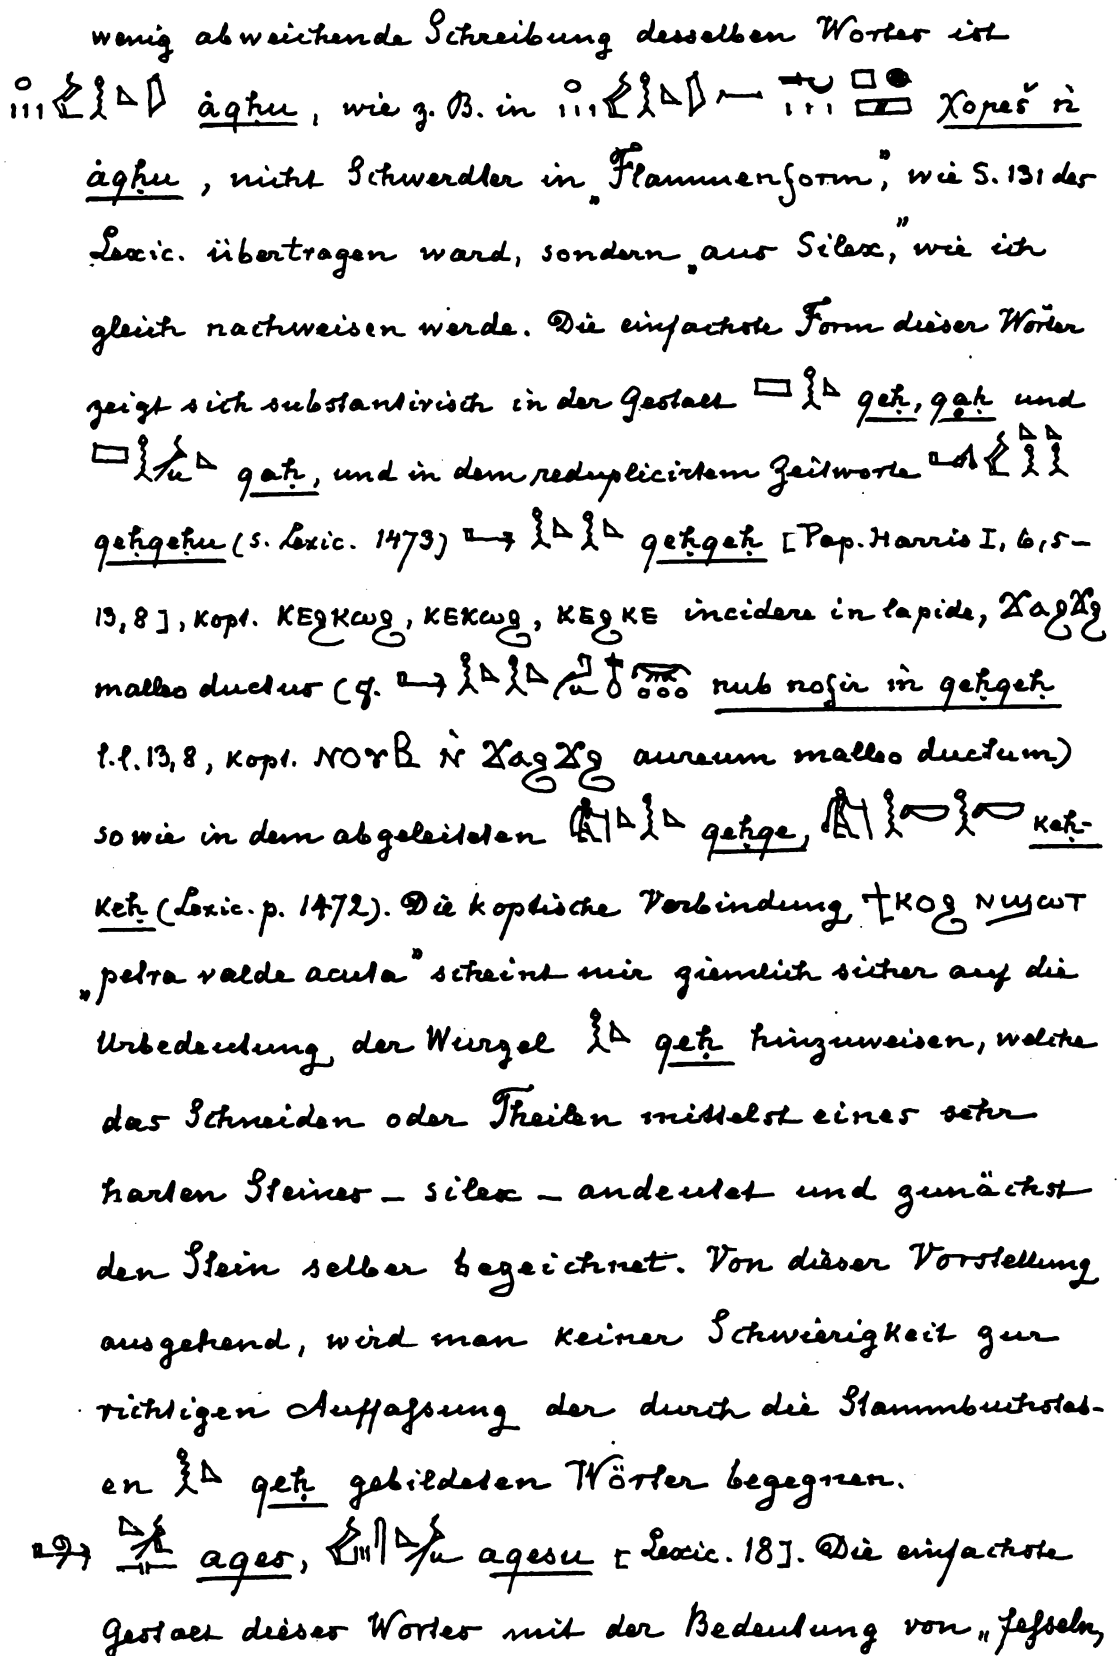 wenig abweichende Schreibung desselben Wortes ist
ȧqḥu, wie z. B. in χopeš ǹ
ȧqḥu, nicht Schwerdter in „Flammenform", wie S. 131 des
Lexic. übertragen ward, sondern „aus Silex," wie ich
gleich nachweisen werde. Die einfachste Form dieser Wörter
zeigt sich substantivisch in der Gestalt qeḥ, qaḥ und
qaḥ, und in dem reduplicirtem Zeitworte
qeḥqeḥu (s. Lexic. 1473) qeḥqeḥ [Pap. Harris I, 6,5-
13,8], kopt. ⲕⲉϩⲕⲱϩ, ⲕⲉⲕⲱϩ, ⲕⲉϩⲕⲉ incidere in lapide, ϫⲁϩϫϩ
malleo ductus (cf. nub nofir m qeḥqeḥ
l.l. 13,8, kopt. ⲛⲟⲩⲃ ⲛ̀ ϫⲁϩϫϩ aureum malleo ductum)
sowie in dem abgeleiteten qeḥqe, keḥ-
keḥ (Lexic. p. 1472). Die koptische Verbindung ϯⲕⲟϩ ⲛϣⲱⲧ
„petra valde acuta" scheint mir ziemlich sicher auf die
Urbedeutung der Wurzel qeḥ hinzuweisen, welche
das Schneiden oder Theilen mittelst eines sehr
harten Steines – silex – andeutet und zunächst
den Stein selber bezeichnet. Von dieser Vorstellung
ausgehend, wird man keiner Schwierigkeit zur
richtigen Auffassung der durch die Stammbuchstab-
en qeḥ gebildeten Wörter begegnen.
aqes, aqesu [Lexic. 18]. Die einfachste
Gestalt dieses Wortes mit der Bedeutung von „fesseln,